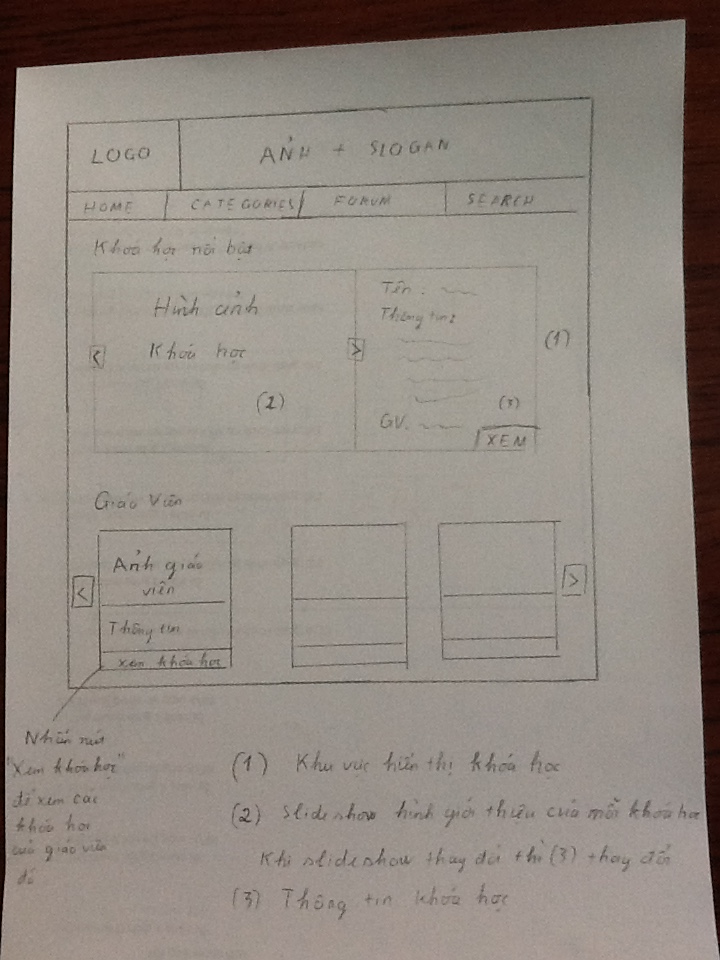 LOGO
ẢNH + SLOGAN
HOME
CATEGORIES
FORUM
SEARCH
Khoá học nổi bật
Hình ảnh
Khóa học
(2)
<
>
Tên:
Thông tin:
(3)
GV.
XEM
(1)
Giáo Viên
<
Ảnh giáo
viên
Thông tin
xem khóa học
>
Nhấn nút
"Xem khóa học"
để xem các
khóa học
của giáo viên
đó
(1) Khu vực hiển thị khóa học
(2) Slideshow hình giới thiệu của mỗi khóa học
Khi slideshow thay đổi thì (3) thay đổi
(3) Thông tin khóa học